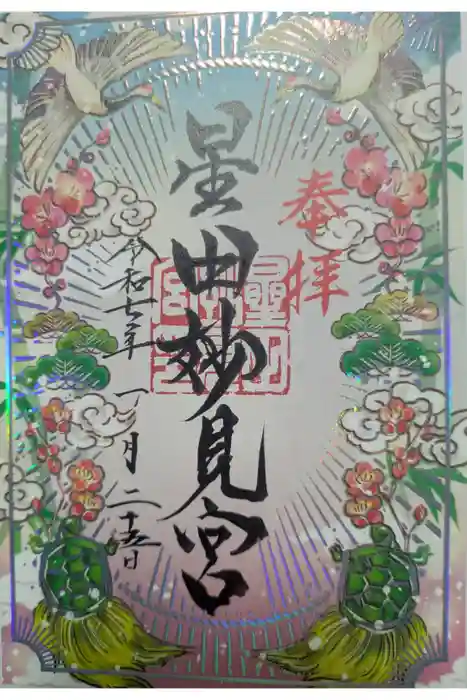 奉拝
星田妙見宮
令和七年 一月 二十五日